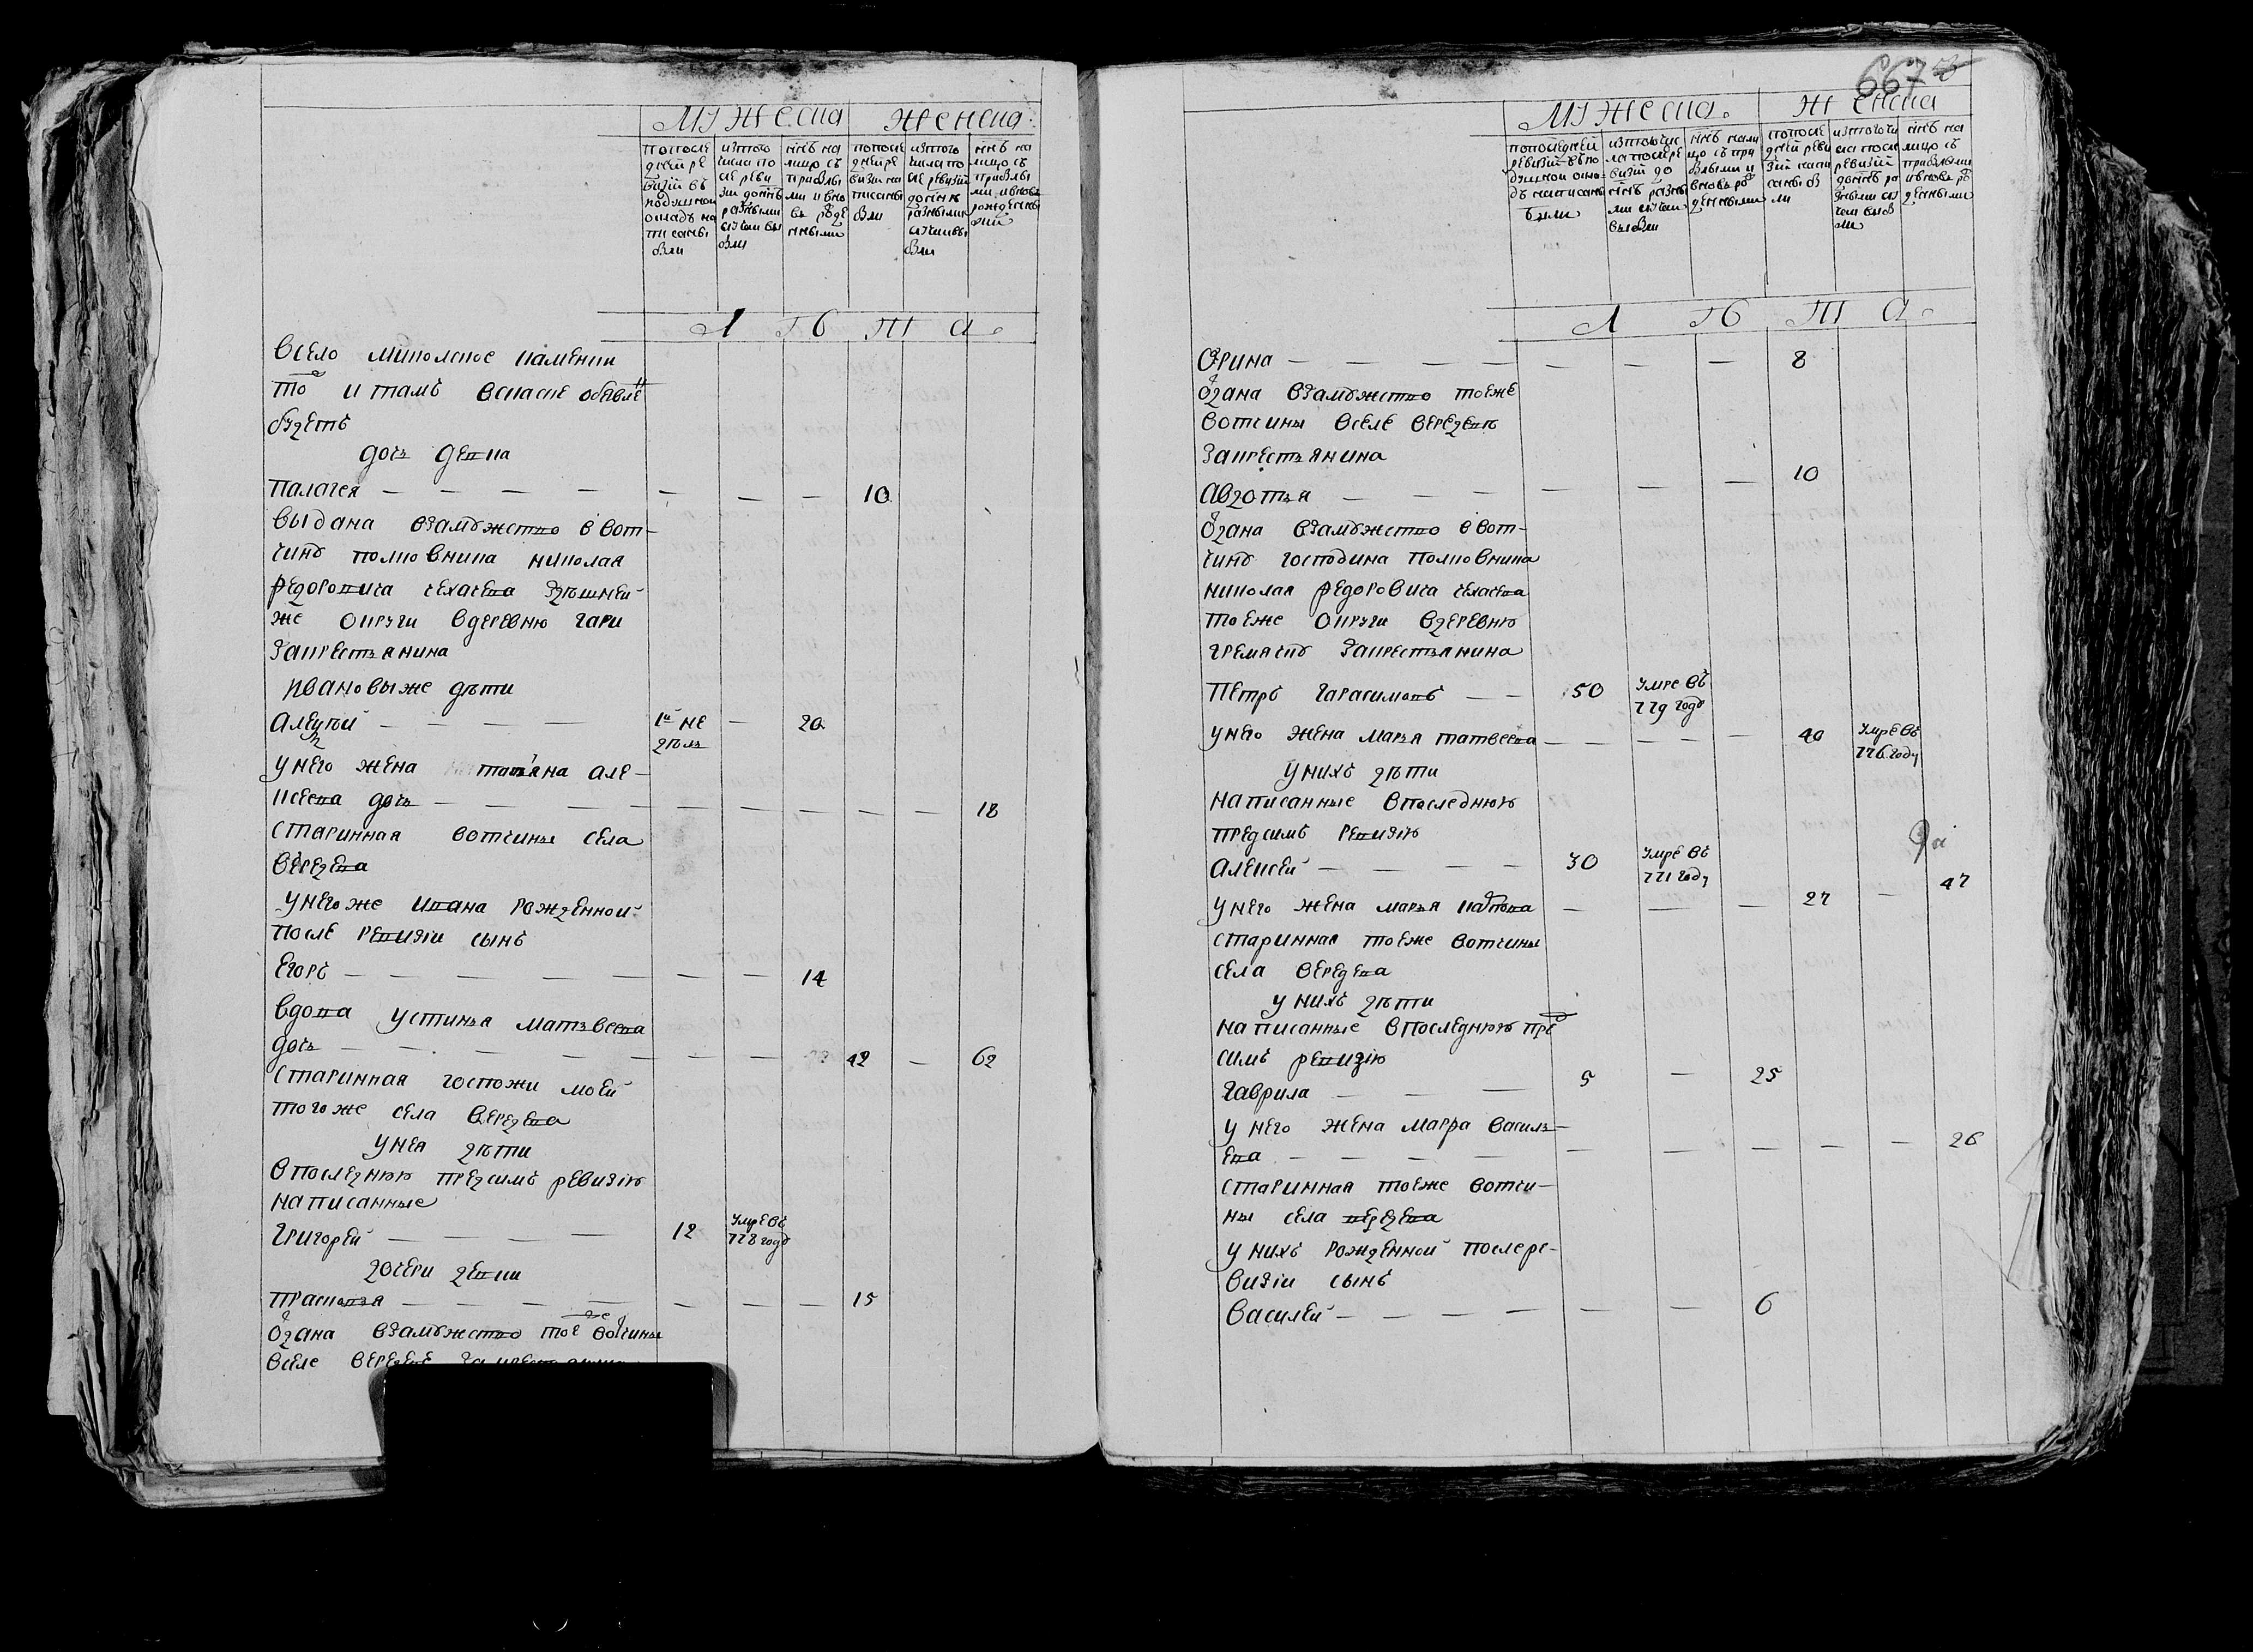 мужеска
женска
попосле
дней ре
визии въ
подушном
окладъ на
писаны
были
изтого
числа по
сле реви
зии донне
разными
случаи вы
были
нне на
лицо съ
прибылы
ми и вно
въ роде
нными
попосле
дней ре
визии на
писаны
были
изтого
числа по
сле ревизии
донне
разными
случаи вы
были
нне на
лицо съ
прибылы
ми ивновь
рожденны
ми
Л Ѣ Т А
всело никольское каменки
то и тамъ всказке объявле
будетъ
дочь девка
Палагея — — — — — — — 10
выдана взамужство ввот-
чину полковника николая
федоровича здешней
же округи вдеревню гари
закрестьянина
Ивановы же дети
1й не
дель
20
унего жена татьяна але-
ксеева дочь — — — — — — — — — 18
старинная вотчины села
вередева
унегоже ивана рожденной
после ревизии сынъ
Егоръ — — — — — — — 14
вдова устинья матвеева
дочь — — — — — — — 42 — 62
старинная госпожи моей
тогоже села вередева
унея дети
впоследнюю предсимъ ревизию
написанные
Григорей — — — — 12 умре въ
778 году
дочери девки
Прасковья — — — — — — — 15
отдана взамужство тоеже вотчины
вселе вередеве закрестьянина
667
мужеска
женска
попоследней
ревизии въпо
душном окла
дъ написаны
были
изтогочис
ла послере
визии до
нне разны
ми случаи
выбыли
нне нали
цо съ при
былыми и
вновь ро
жденными
попосле
дней реви
зии напи
саны бы
ли
изтогочи
сла после
ревизии
донне ра
зными слу
чаи выб
ыли
нне на
лицо съ
прибылыми
ивновь ро
жденными
Л Ѣ Т А
Орина — — — — — — — 8
отдана взамужство тоеже
вотчины вселе вередевѣ
закрестьянина
Авдотья — — — — — — — 10
отдана взамужство ввот-
чину господина полковника
николая федоровича
тоеже округи вдеревню
гремячку закрестьянина
Петръ гарасимовъ — — 50 умре въ
779 году
унего жена марья матвеева — — — — — 40 умре въ
776 году
унихъ дети
написанные впоследнюю
предсимъ ревизию
Алексей — — — — 30 умре въ
771 году
унего жена марья — — — 27 — 47
старинная тоеже вотчины
села вередева
унихъ дети
написанные впоследнюю пред
симъ ревизию
Гаврила — — — 5 — 25
унего жена мавра василь-
ева — — — — — — — — — 26
старинная тоеже вотчи-
ны села вередева
унихъ рожденной послере-
визии сынъ
Василей — — — — — — 6